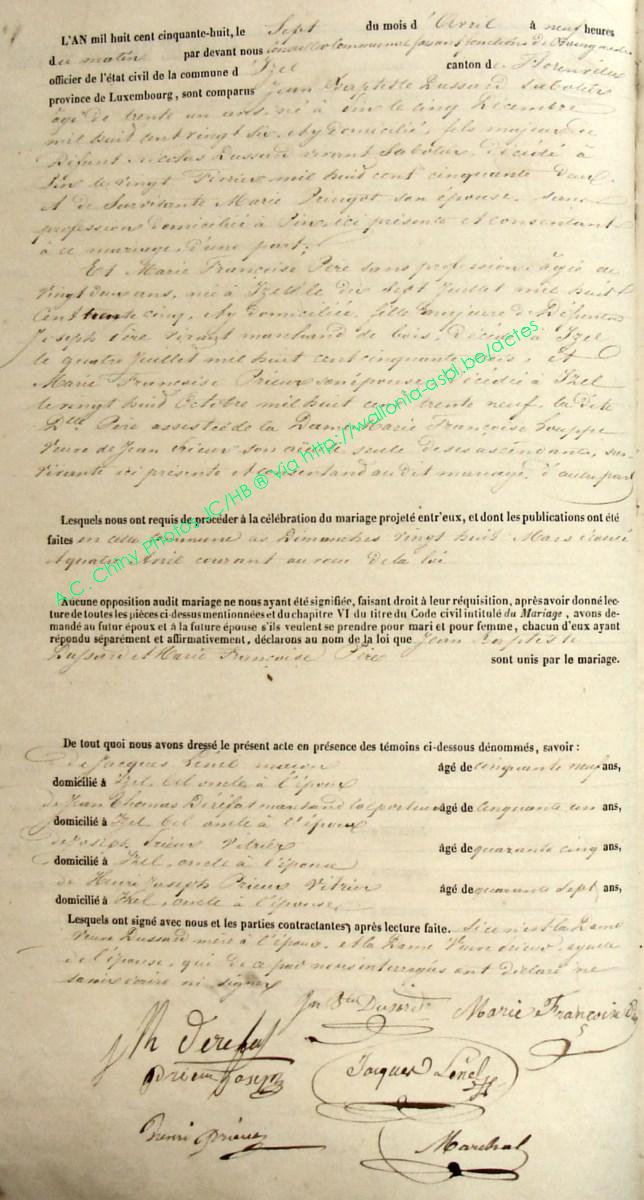 L'AN mil huit cent cinquante-huit, le Sept du mois d'Avril à neuf heures
du matin par devant nous conseiller communal faisant fonctions de Bourgmestre
officier de l'état civil de la commune d'Izel canton de Florenville
province de Luxembourg, sont comparus Jean Baptiste Dussard Sabotier
âgé de trente un ans, né à Pin le cinq Décembre
mil huit cent vingt six, et y domicilié, fils majeur de
Défunt Nicolas Dussard vivant Sabotier, Décédé à
Pin le vingt Février mil huit cent cinquante Deux
et de Survivante Marie son épouse, sans
profession, domiciliée à Pin, ici présente et consentant
à ce mariage, d'une part;
Et Marie Françoise Père sans profession, âgée de
vingt deux ans, née à Izel le dix sept Juillet mil huit
cent trente cinq, et y domiciliée, fille majeure de Défunt
Joseph Père vivant marchand de bois, décédé à Izel
le quatre Juillet mil huit cent cinquante , et
Marie Françoise Prieur son épouse, décédée à Izel
le vingt huit Octobre mil huit cent trente neuf, la Dite
Dlle Père assistée de la Dame Marie Françoise
Veuve de Jean Prieur son aïeule, seule de ses ascendants, sur-
vivante ici présente et consentand au dit mariage, d'autre part
Lesquels nous ont requis de procéder à la célébration du mariage projeté entr'eux, et dont les publications ont été
faites en cette commune as Dimanches vingt huit Mars
et quatre Avril courant au vœu de la loi
Aucune opposition audit mariage ne nous ayant été signifiée, faisant droit à leur réquisition, après avoir donné lec-
ture de toutes les pièces ci-dessus mentionnées et du chapitre VI du titre du Code civil intitulé du Mariage, avons de-
mandé au futur époux et à la future épouse s'ils veulent se prendre pour mari et pour femme, chacun d'eux ayant
répondu séparément et affirmativement, déclarons au nom de la loi que Jean Baptiste
Dussard et Marie Françoise Père sont unis par le mariage.
De tout quoi nous avons dressé le présent acte en présence des témoins ci-dessous dénommés, savoir :
de Jacques Lénel maçon âgé de cinquante neuf ans,
domicilié à Izel bel oncle à l'époux
de Jean Thomas âgé de Cinquante un ans,
domicilié à Izel bel oncle à l'époux
de Joseph Prieur Vitrier âgé de quarante cinq ans,
domicilié à Izel, oncle à l'épouse
de Henri Joseph Prieur Vitrier âgé de quarante sept ans,
domicilié à Izel, oncle à l'épouse
Lesquels ont signé avec nous et les parties contractantes, après lecture faite. Si ce n'est la Dame
Veuve Dussard mère à l'époux, et la Dame Veuve Prieur, ayeule
à l'épouse, qui de ce par nous interrogés ont déclaré ne
savoir écrire ni signer
Marie Françoise
Prieur Joseph Jacques Lénel
henri Prieur Maréchal
A.C. Chiny Photos JC/HB ® Via http://wallonia-asbl.be/actes.